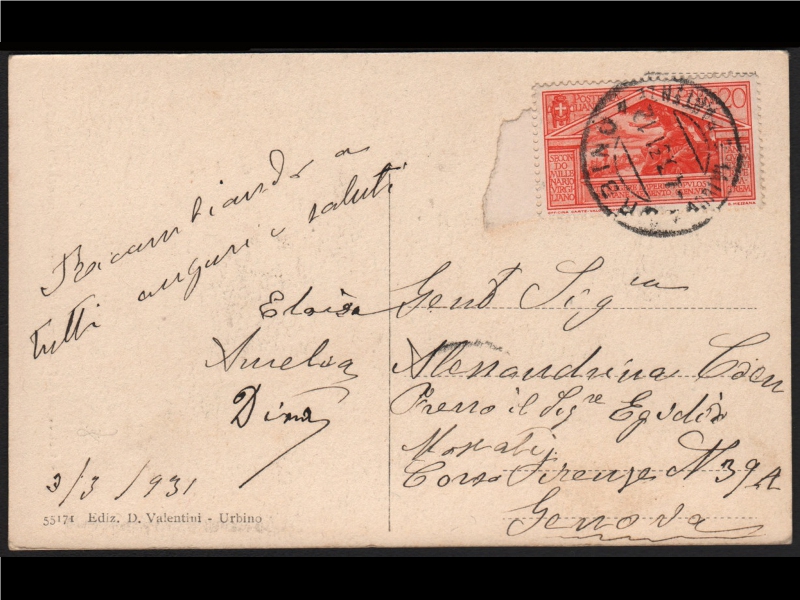 Ricambiando a
tutti auguri e saluti
Eloisa
Amelia
Dina
3/3/931
55171 Ediz. D. Valentini - Urbino
POSTE
ITALIANE
20
SECON
DO MILLE
NARIO
VIRGI
LIANO
URBINO
Gent Sig.na
Alessandrina Coen
Presso il Sig.re Egidio
Moscati
Corso Firenze N 39A
Genova